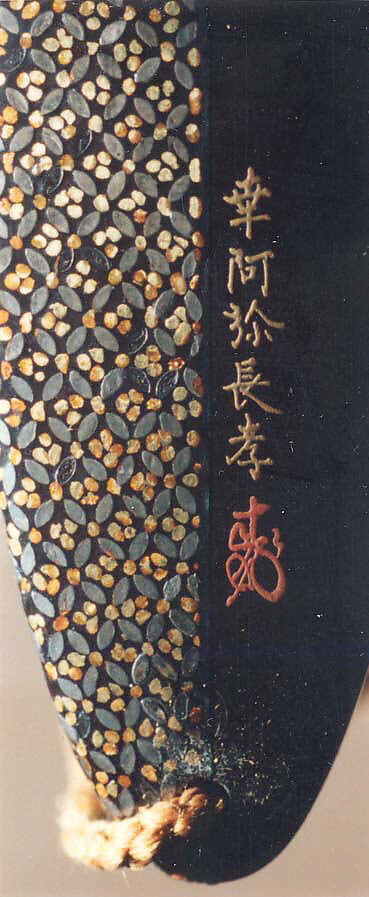 幸阿弥長孝